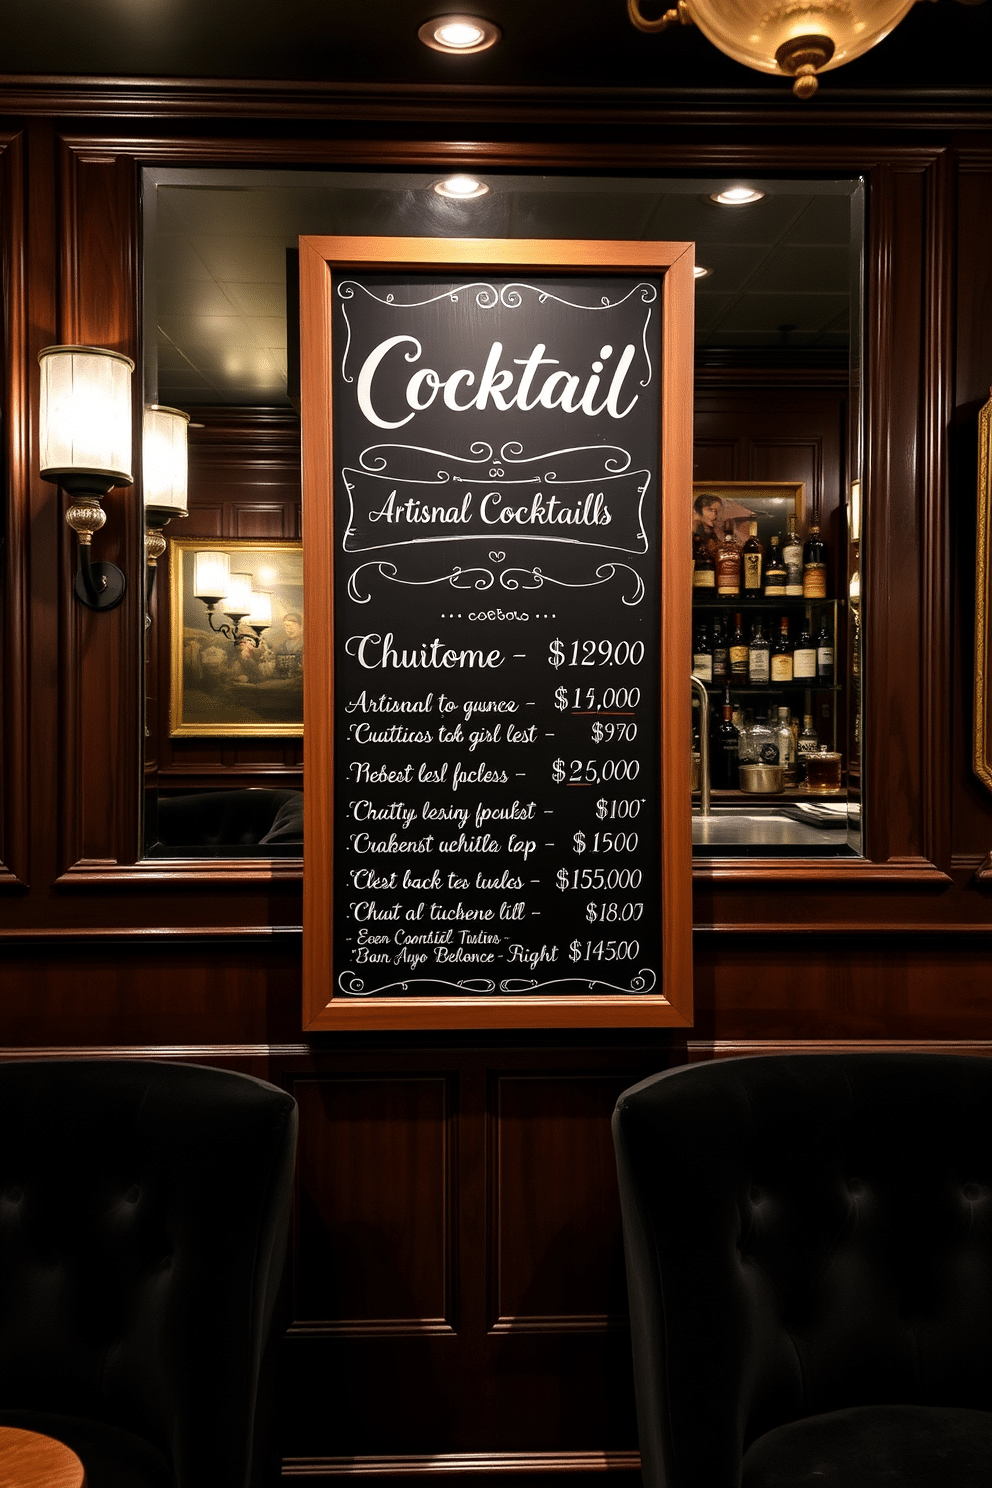 Cocktail
Artisnal Cocktaills
Chuitome - $129.00
Artisnal to gunce - $15,000
Cuatticos tok girl lest - $970
Rebest lesl facless - $25,000
Chutty lesiny foculst - $100
Crakenst uchitls tap - $1500
Clest back tes tuales - $155,000
Chut al tuchene lill - $18.07
- Eon Conntkil Tastirs -
Bam Aujo Bellonce - Right $145.00